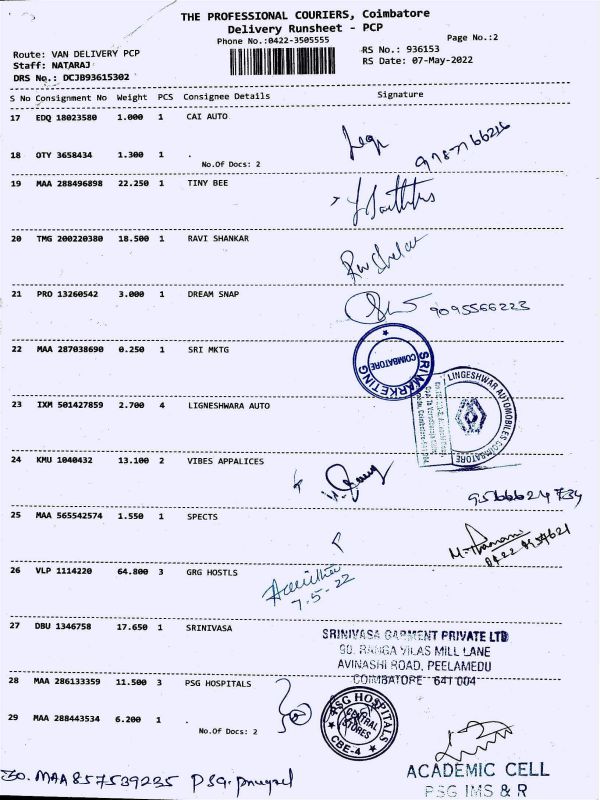 THE PROFESSIONAL COURIERS, Coimbatore
Delivery Runsheet - PCP
Phone No.:0422-3505555
Page No.:2
Route: VAN DELIVERY PCP
RS No.: 936153
Staff: NATARAJ
RS Date: 07-May-2022
DRS No.: DCJB93615302
S No Consignment No Weight PCS Consignee Details Signature
17 EDQ 18023580 1.000 1 CAI AUTO
18 OTY 3658434 1.300 1 .
No.Of Docs: 2
19 MAA 288496898 22.250 1 TINY BEE
20 TMG 200220380 18.500 1 RAVI SHANKAR
21 PRO 13260542 3.000 1 DREAM SNAP
9095566223
22 MAA 287038690 0.250 1 SRI MKTG
SRI MARKETING
COIMBATORE
LINGESHWAR AUTOMOBILES
COIMBATORE
23 IXM 501427859 2.700 4 LIGNESHWARA AUTO
24 KMU 1040432 13.100 2 VIBES APPALICES
9566624734
25 MAA 565542574 1.550 1 SPECTS
26 VLP 1114220 64.800 3 GRG HOSTLS
7-5-22
27 DBU 1346758 17.650 1 SRINIVASA
SRINIVASA GARMENT PRIVATE LTD
90, RANGA VILAS MILL LANE
AVINASHI ROAD, PEELAMEDU
COIMBATORE - 641 004
28 MAA 286133359 11.500 3 PSG HOSPITALS
PSG HOSPITALS
CENTRAL STORES
CBE-4
29 MAA 288443534 6.200 1 .
No.Of Docs: 2
30. MAA 857539235 PSG.
ACADEMIC CELL
PSG IMS & R